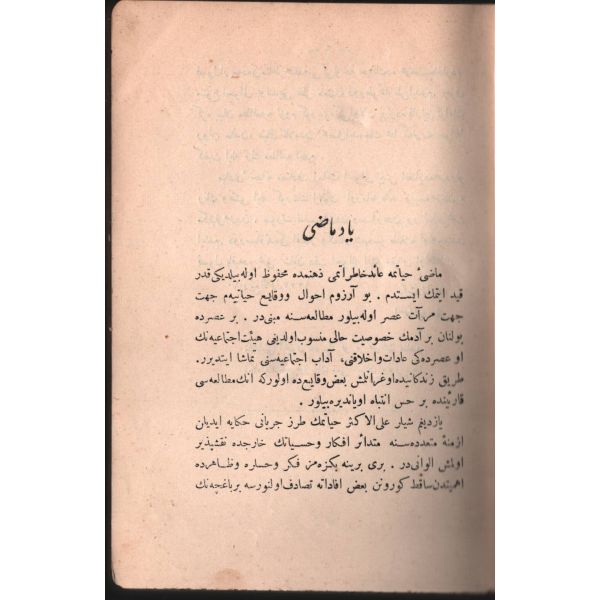 یاد ماضی
ماضیٔ حیاتمه عائد خاطراتمی ذهنمده محفوظ اوله بیلدیکی قدر
قید ایتمك ایستدم . بو آرزوم احوال و وقایع حیاتیه‌م جهت
جهت مرآت عصر اوله بیلور مطالعه سنه مبنی در . بر عصرده
بولنان بر آدمك خصوصیت حالی منسوب اولدیغی هیئت اجتماعیه نك
او عصرده کی عادات و اخلاقنی ، آداب اجتماعیه سنی تماشا ایتدیرر.
طریق زندکانیده اوغرانلمش بعض وقایع ده اولورکه انك مطالعه سی
قارئینده بر حس انتباه اویاندیره بیلور .
یازدیغم شیلر علی الاکثر حیاتمك طرز جریانی حکایه ایدیان
ازمنهٔ متعدده سنه متدائر افکار و حسیاتك خارجده نقشپذیر
اولمش الوانی در . بری برینه بکزه مز فکر و حسلره و ظاهرده
اهمیتدن ساقط کورونن بعض افاداته تصادف اولنورسه بر باغچه نك